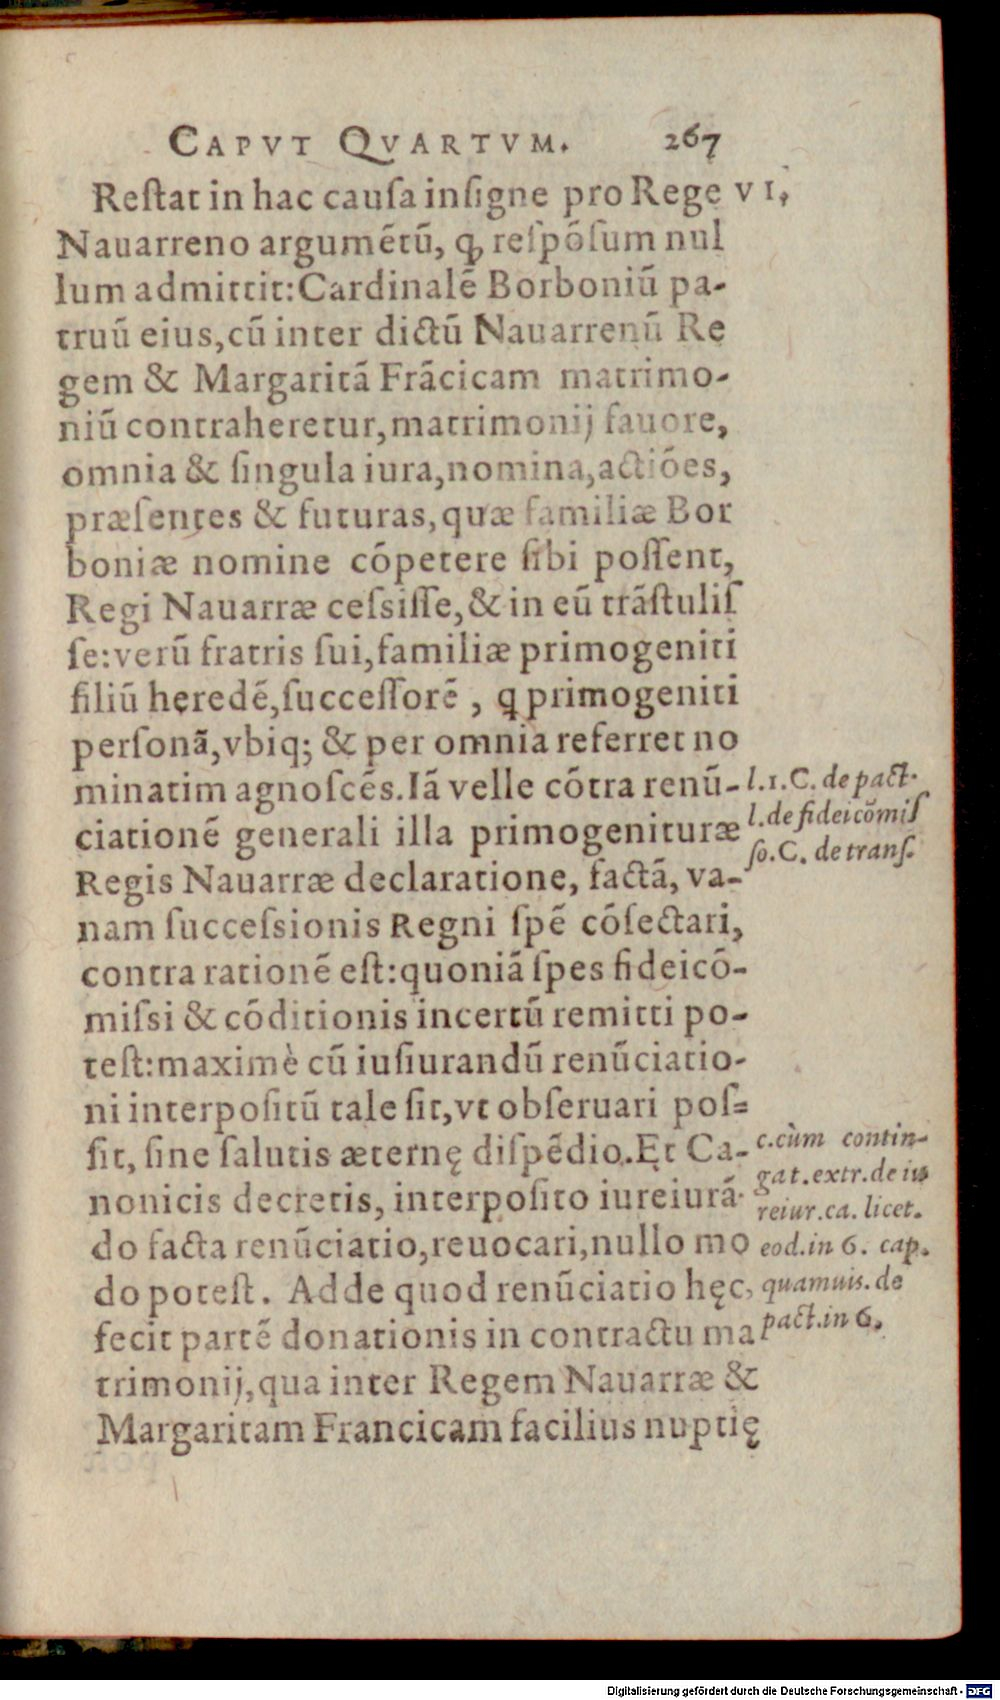 CAPVT QVARTVM. 267
Restat in hac causa insigne pro Rege VI.
Nauarreno argumẽtũ, ꝙ respõsum nul
lum admittit: Cardinalẽ Borboniũ pa-
truũ eius, cũ inter dictũ Nauarrenũ Re
gem & Margaritã Frãcicam matrimo-
niũ contraheretur, matrimonij fauore,
omnia & singula iura, nomina, actiões,
præsentes & futuras, quæ familiæ Bor
boniæ nomine cõpetere sibi possent,
Regi Nauarræ cessisse, & in eũ trãstulis
se: verũ fratris sui, familiæ primogeniti
filiũ hęredẽ, successorẽ, q primogeniti
personã, vbiq; & per omnia referret no
minatim agnoscẽs. Iã velle cõtra renũ-
ciationẽ generali illa primogenituræ
Regis Nauarræ declaratione, factã, va-
nam successionis Regni spẽ cõsectari,
contra rationẽ est: quoniã spes fideicõ-
missi & cõditionis incertũ remitti po-
test: maximè cũ iusiurandũ renũciatio-
ni interpositũ tale sit, vt obseruari pos=
sit, sine salutis æternę dispẽdio. Et Ca-
nonicis decretis, interposito iureiurã-
do facta renũciatio, reuocari, nullo mo
do potest. Adde quod renũciatio hęc,
fecit partẽ donationis in contractu ma
trimonij, qua inter Regem Nauarræ &
Margaritam Francicam facilius nuptię
l.1.C. de pact.
l.de fideicõmis
so.C. de trans.
c.cùm contin-
gat.extr.de iu
reiur.ca. licet.
eod.in 6. cap.
quamuis.de
pact.in 6.
Digitalisierung gefördert durch die Deutsche Forschungsgemeinschaft - DFG